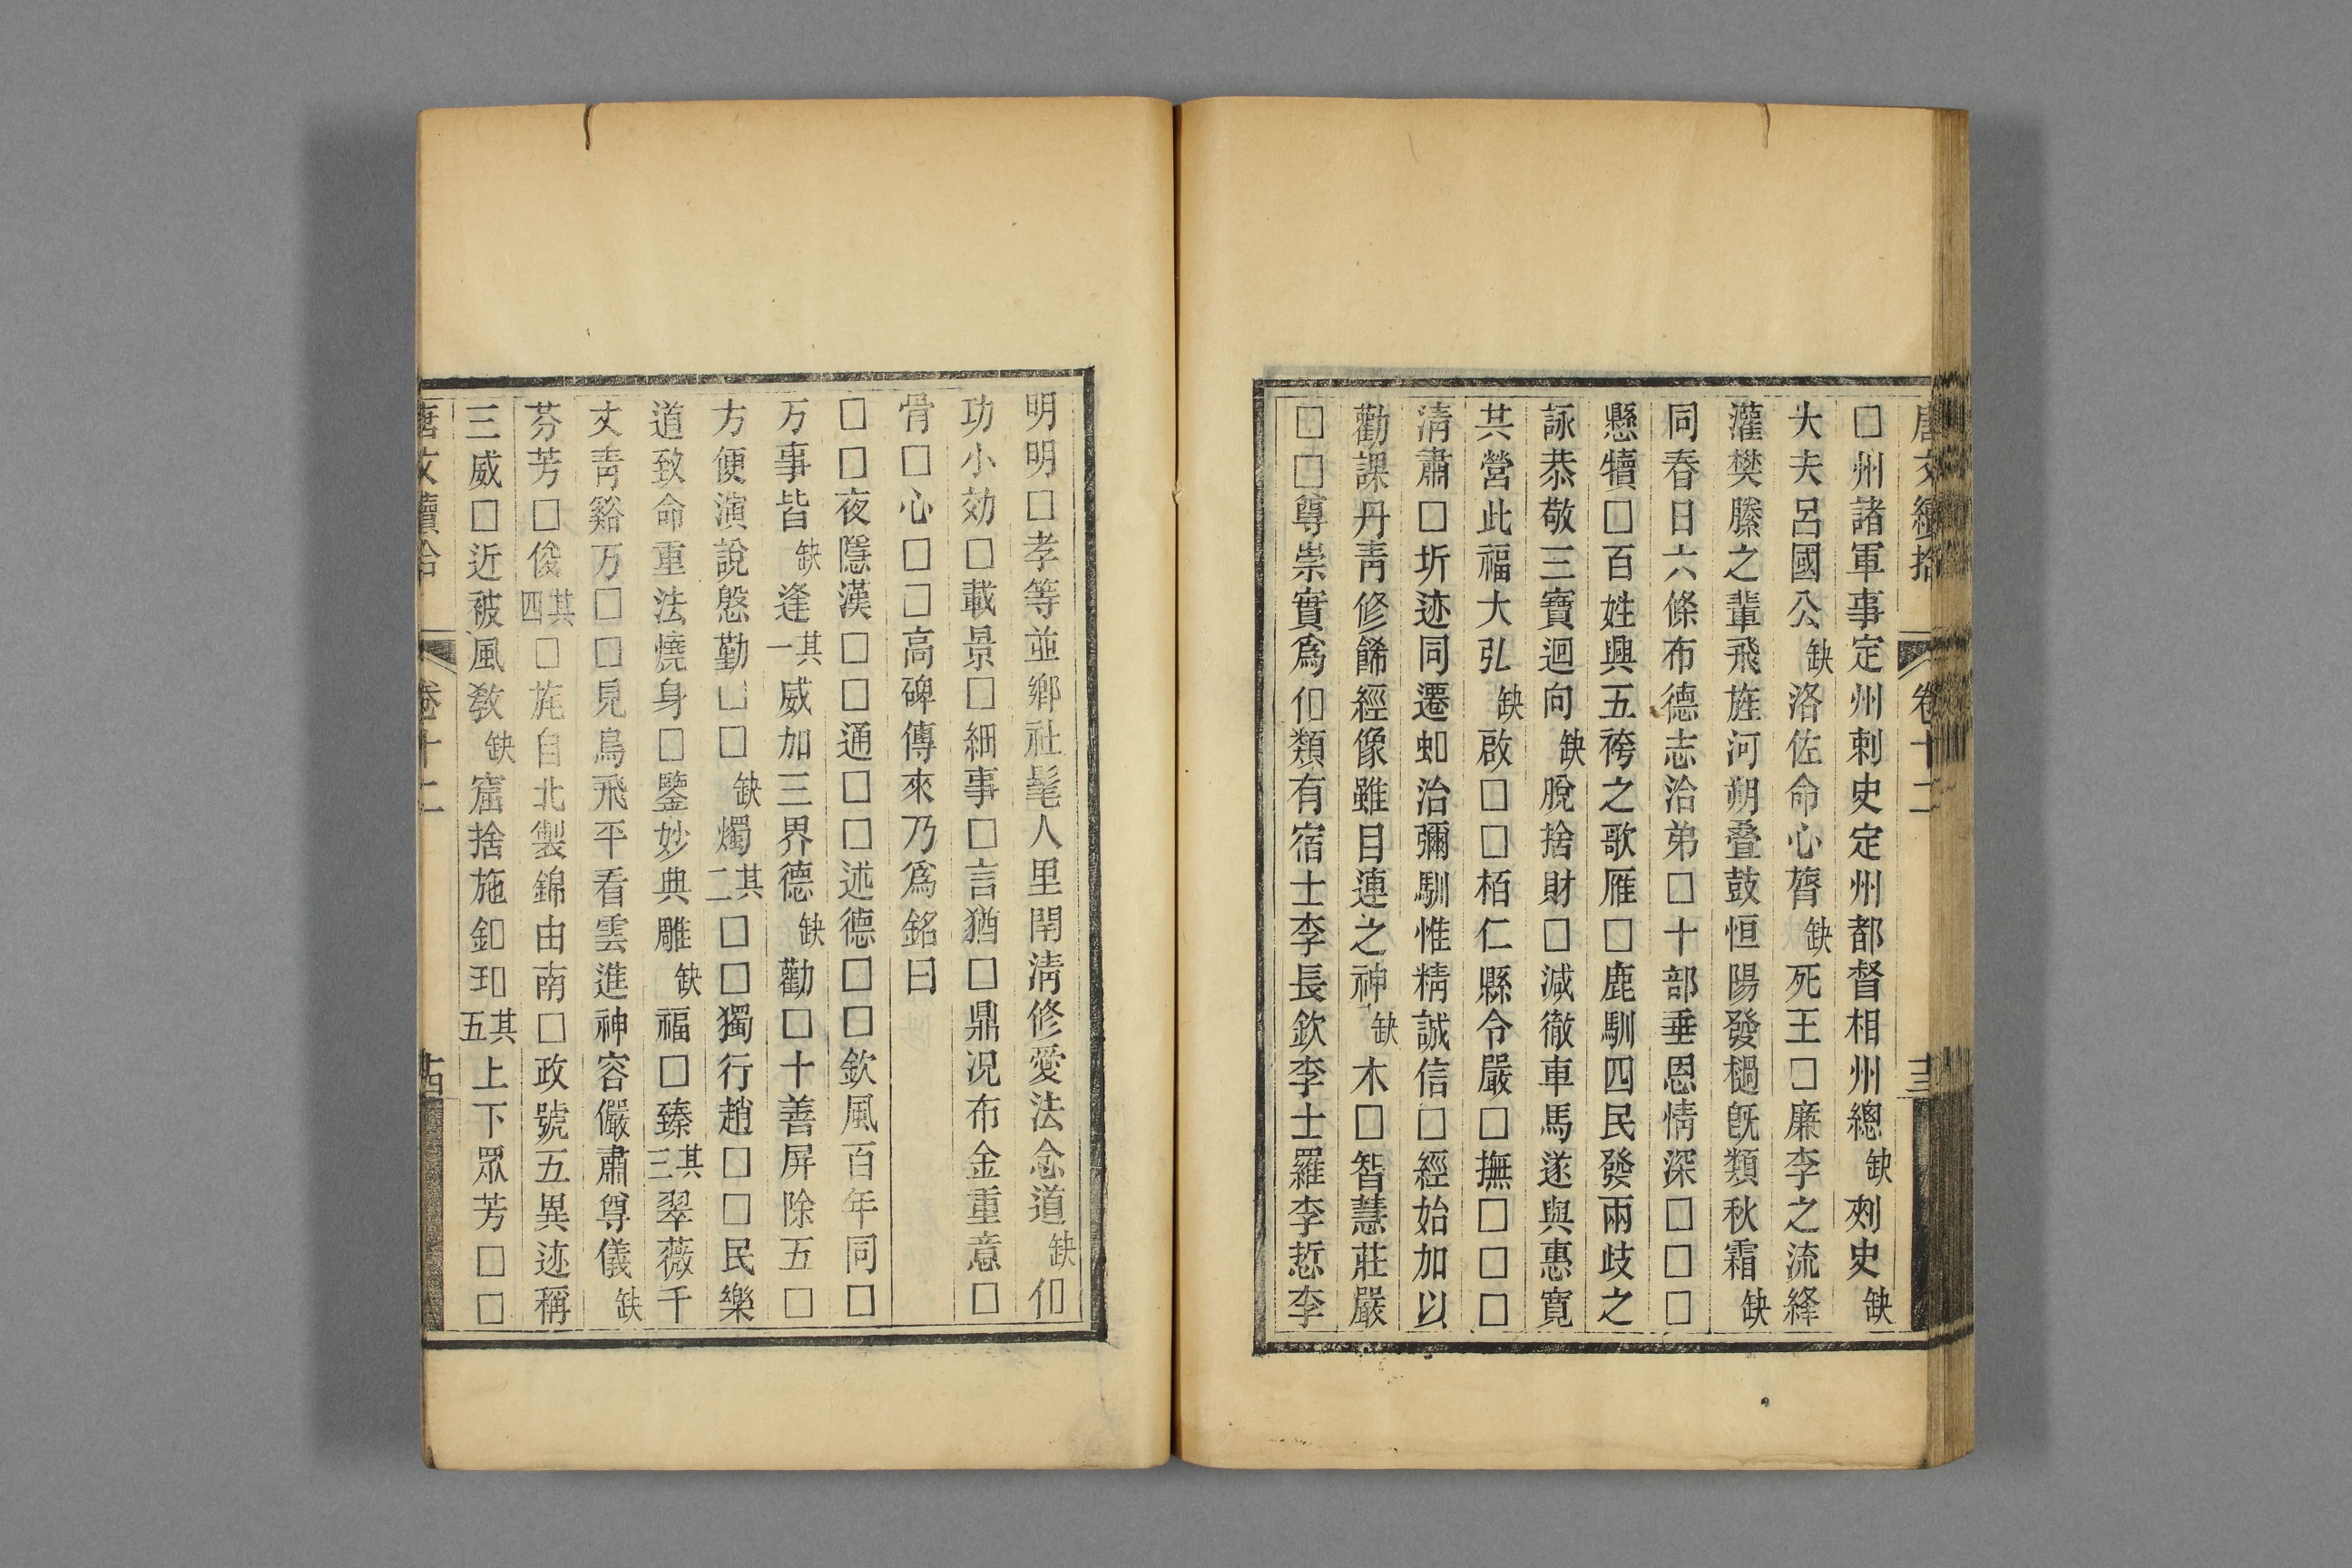 唐文續拾 卷十二 十三
□州諸軍事定州刺史定州都督相州總缺刺史缺
大夫呂國公缺洛佐命心膂缺死王□廉李之流絳
灌樊滕之輩飛旌河朔疊鼓恒陽發檛旣類秋霜缺
同春日六條布德志洽弟□十部垂恩情深□□□
懸犢□百姓興五袴之歌雁□鹿馴四民發兩歧之
詠恭敬三寶迴向缺脫捨財□減徹車馬遂與惠寬
其營此福大弘缺啟□□栢仁縣令嚴□撫□□□
淸肅□圻迹同遷虵治彌馴惟精誠信□經始加以
勸課丹靑修餙經像雖目連之神缺木□智慧莊嚴
□□尊崇實爲類有宿士李長欽李士羅李悊李
明明□孝等並鄉社髦人里閈淸修愛法念道缺
功小効□載景□細事□言猶□鼎况布金重意□
骨□心□□高碑傳來乃爲銘曰
□□夜隱漢□□通□□述德□□欽風百年同□
万事皆缺逢其一威加三界德缺勸□十善屏除五□
方便演說慇勤□□缺燭其二□□獨行趙□□民樂
道致命重法燒身□鑒妙典雕缺福□臻其三翠薇千
丈靑谿万□□見鳥飛平看雲進神容儼肅尊儀缺
芬芳□俊其四□旄自北製錦由南□政號五異迹稱
三威□近被風敎缺窟捨施釦玑其五上下眾芳□□
唐文續拾 卷十二 十四